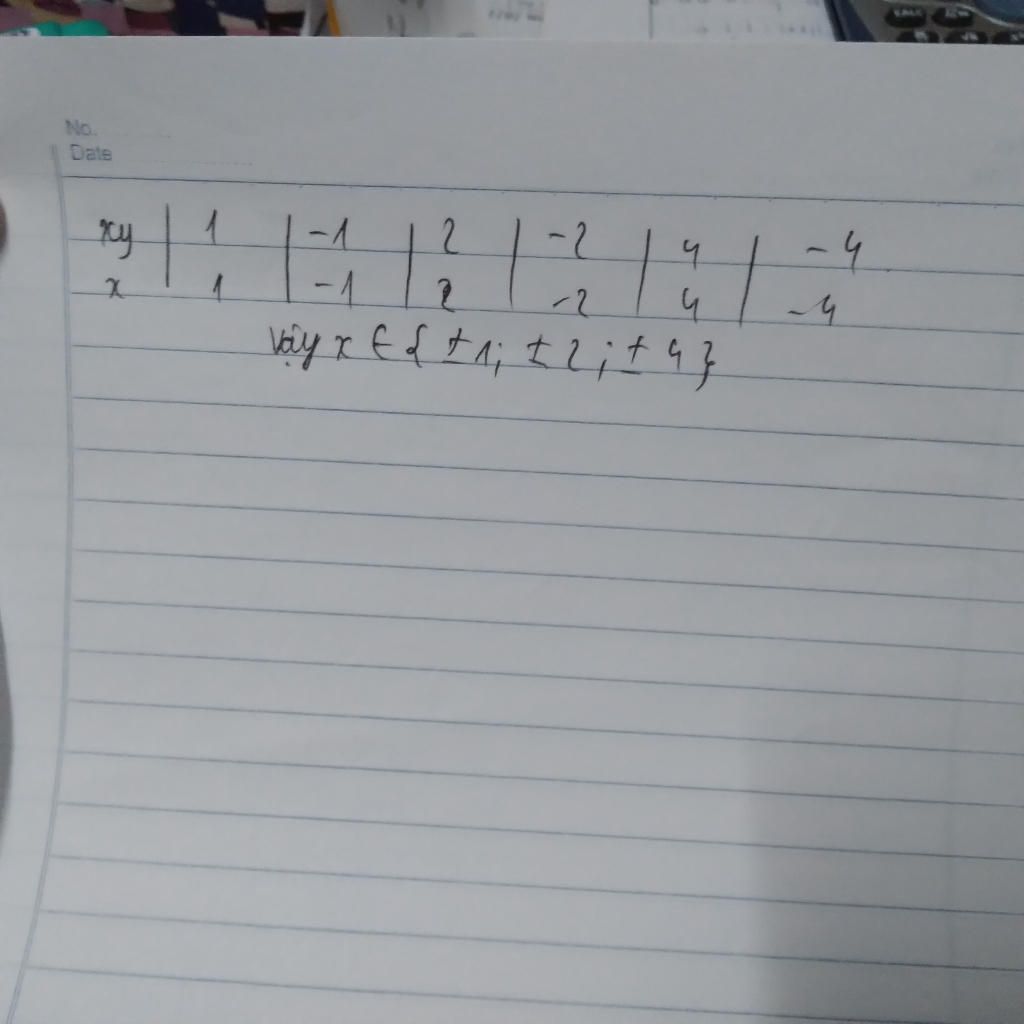 No.
Date
xy | 1 | -1 | 2 | -2 | 4 | -4
x | 1 | -1 | 2 | -2 | 4 | -4
Vậy x ∈ { ± 1; ± 2 ; ± 4 }